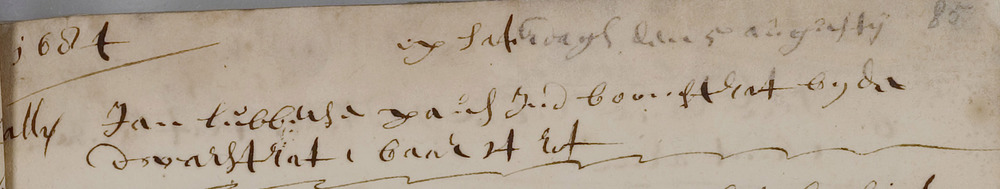 1684
op Saterdagh den 5 augusty 85
Jan lubberse paus Ind boomstraat by de
dwarstraat 1 baar 4 rt